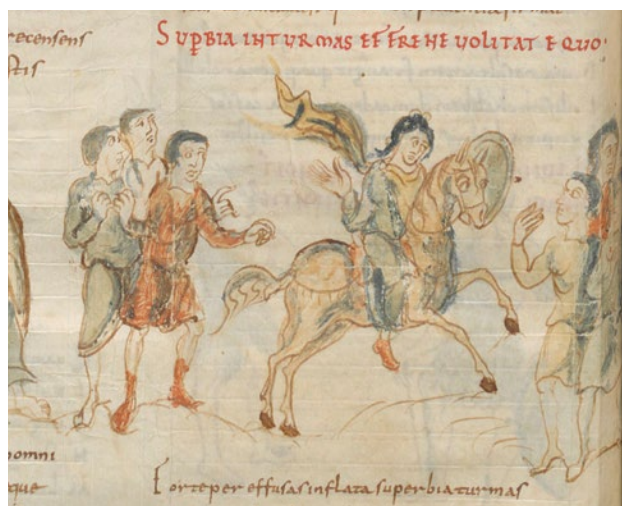 recensens
SUPBIA IN TURMAS EFFRENE UOLITAT EQUO·
omni
que
Forte per effusas inflata superbia turmas